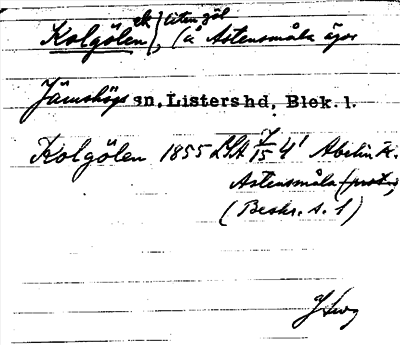 Kolgölen ek, liten göl (å Astensmåla ägor
Jämshögs sn, Listers hd, Blek. l.
Kolgölen 1855 LSA J 15-4¹ Abelin k.
Astensmåla (prot.)
(Beskr. s. 1)